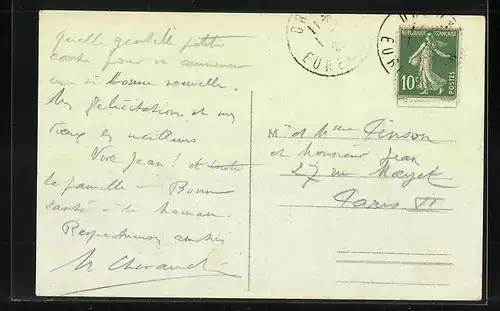 Quelle gentille petite
carte pour
si bonne nouvelle.
félicitations et mes
vœux les meilleurs
Vive Jean! et toute
la famille – Bonne
santé à la maman.
Respectueuses amitiés
M et Mme Pinson
et Monsieur Jean
27 rue Mayet
Paris VI
EURE
EURE
REPUBLIQUE FRANÇAISE
10c
POSTES